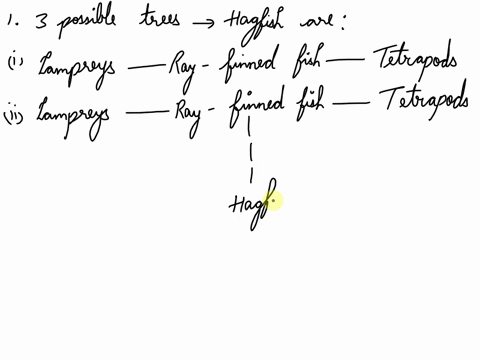 1. 3 possible trees → Hagfish are:
(i) Lampreys — Ray - finned fish — Tetrapods
(ii) Lampreys — Ray - finned fish — Tetrapods
Hagf